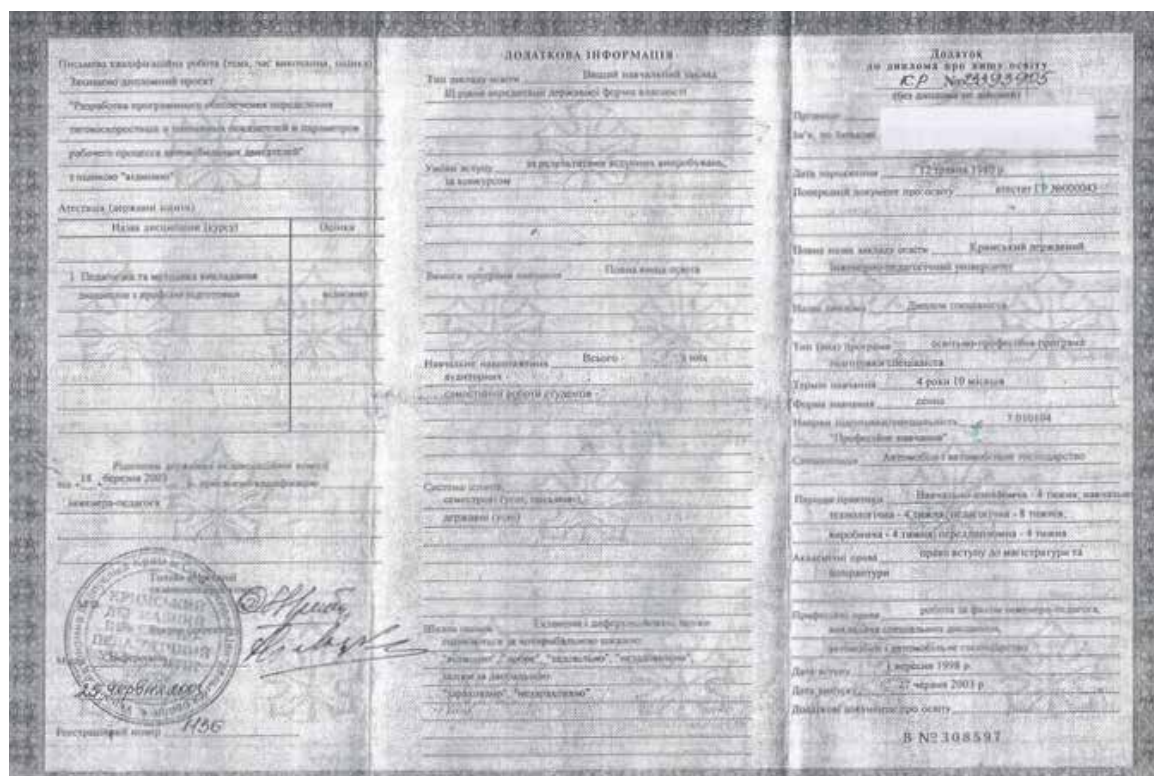 Письмова кваліфікаційна робота (тема, час виконання, оцінка)
Захищено дипломний проект
"Разработка программного обеспечения определения
и показателей и параметров
рабочего процесса автомобильных двигателей"
з оцінкою "відмінно"
Атестація (державні іспити)
Назва дисципліни (курсу) Оцінка
1 Педагогіка та методика викладання
дисциплін з профілю підготовки відмінно
Рішенням державної кваліфікаційної комісії
від 18 березня 2003 р. присвоєно кваліфікацію
інженера-педагога
Голова державної
КРИМСЬКИЙ
М.П.
Сімферополь
25 червня 2003
Реєстраційний номер 1136
ДОДАТКОВА ІНФОРМАЦІЯ
Тип закладу освіти Вищий навчальний заклад
III рівня акредитації державної форми власності
Умови вступу за результатами вступних випробувань,
за конкурсом
Вимоги програми навчання Повна вища освіта
Навчальне навантаження Всього
аудиторних -
самостійної роботи студентів -
Система оцінок
семестрові (усні, письмові),
державні (усні)
Шкала оцінок Екзамени і диференційовані заліки
оцінюються за чотирибальною шкалою
"відмінно", "добре", "задовільно", "незадовільно",
заліки за двобальною
"зараховано", "незараховано"
Додаток
до диплома про вищу освіту
КР №23393905
(без диплома не дійсний)
Прізвище
Ім'я, по батькові
Дата народження 12 травня 1980 р
Попередній документ про освіту атестат ГР №000043
Повна назва закладу освіти Кримський державний
інженерно-педагогічний університет
Назва диплому Диплом спеціаліста
Тип (вид) програми освітньо-професійна програма
підготовки спеціаліста
Термін навчання 4 роки 10 місяців
Форма навчання денна
Напрям підготовки/спеціальність 7.010104
"Професійне навчання"
Спеціалізація Автомобілі і автомобільне господарство
Періоди практики Навчально-ознайомча - 4 тижня, навчально-
технологічна - 4 тижня, педагогічна - 8 тижнів,
виробнича - 4 тижня, переддипломна - 4 тижня
Академічні права право вступу до магістратури та
аспірантури
Професійні права робота за фахом інженера-педагога,
викладача спеціальних дисциплін
автомобілі і автомобільне господарство
Дата вступу 1 вересня 1998 р
Дата випуску 27 червня 2003 р
Додаткові документи про освіту
В №308597